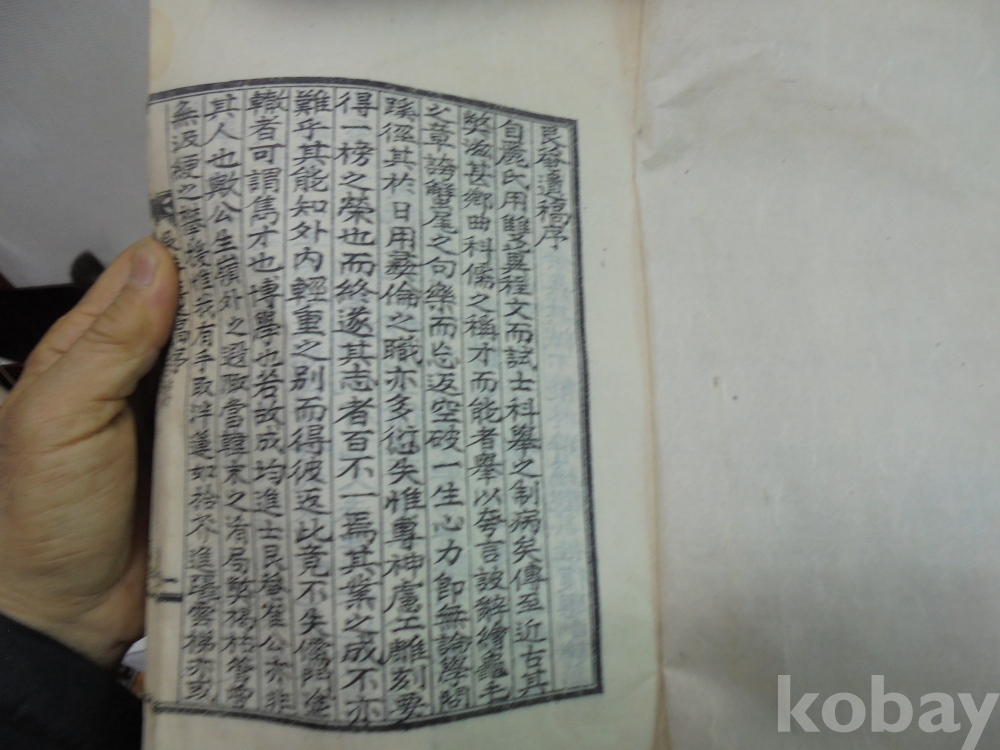 艮菴遺稿序
自麗氏用雙冀程文而試士科擧之制病矣傳至近古其
弊滋甚鄕曲科儒之稱才而能者擧以夸言詖辭繪龜毛
之章誇蟹尾之句樂而忘返空破一生心力卽無論學問
蹊徑其於日用彛倫之職亦多衍失惟專神慮工雕刻要
得一榜之榮也而終遂其志者百不一焉其業之成不亦
難乎其能知外內輕重之别而得彼返此竟不失儒
轍者可謂雋才也博學也若故成均進士艮菴崔公亦非
其人也歟公生 外之遐陬當韓末之 局
無汲綆之 後惟我有手取泮蓮如拾芥進 雲梯亦或
kobay